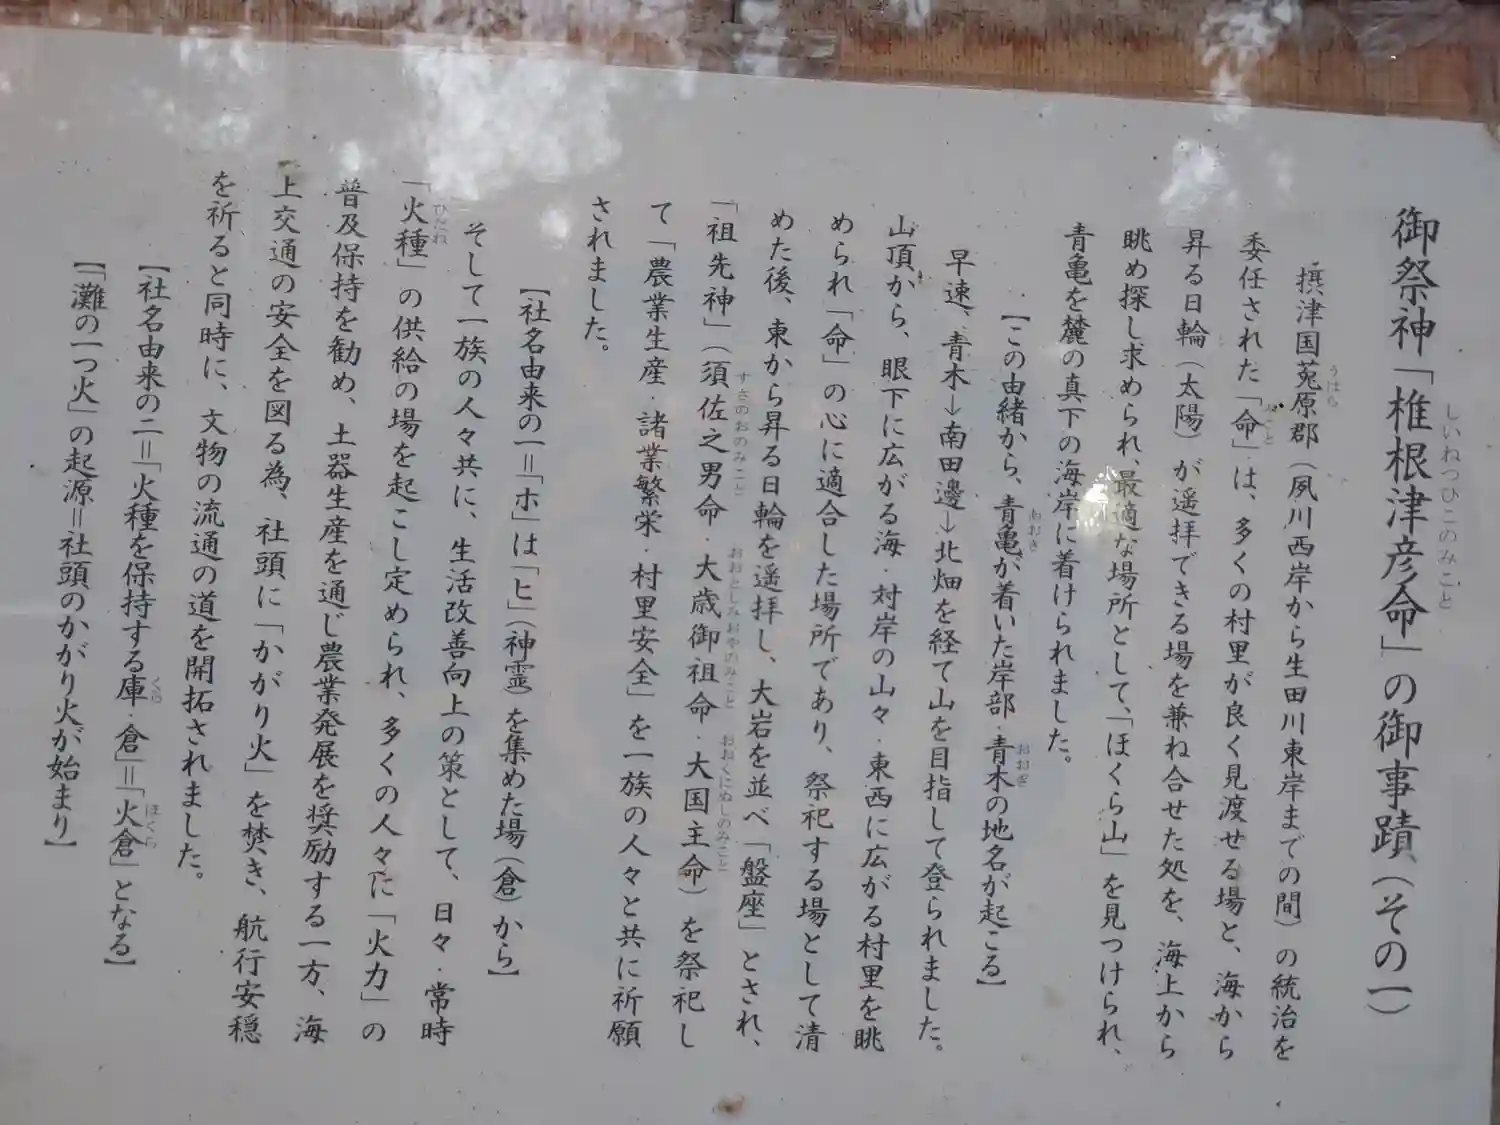 御祭神「椎根津彦命」の御事蹟、(その一)
しいねつひこのみこと
摂津国菟原郡(夙川西岸から生田川東岸までの間)の統治を
うはら
委任された「命」は、多くの村里が良く見渡せる場と、海から
みこと
昇る日輪(太陽)が遥拝できる場を兼ね合せた処を、海上から
眺め探し求められ、最適な場所として、「ほくら山」を見つけられ、
青亀を麓の真下の海岸に着けられました。
【この由緒から、青亀が着いた岸部・青木の地名が起こる】
あおき
おおぎ
早速、青木→南田邊→北畑を経て山を目指して登られました。
山頂から、眼下に広がる海・対岸の山々・東西に広がる村里を眺
められ「命」の心に適合した場所であり、祭祀する場として清
めた後、東から昇る日輪を遥拝し、大岩を並べ「盤座」とされ、
「祖先神」(須佐之男命・大歳御祖命・大国主命)を祭祀し
すさのおのみこと
おおとしみおやのみこと
おおくにぬしのみこと
て「農業生産・諸業繁栄・村里安全」を一族の人々と共に祈願
されました。
【社名由来の一=「ホ」は「ヒ」(神霊)を集めた場(倉)から】
そして一族の人々共に、生活改善向上の策として、日々・常時
「火種」の供給の場を起こし定められ、多くの人々に「火力」の
ひだね
普及保持を勧め、土器生産を通じ農業発展を奨励する一方、海
上交通の安全を図る為、社頭に「かがり火」を焚き、航行安穏
を祈ると同時に、文物の流通の道を開拓されました。
【社名由来の二=「火種を保持する庫・倉」=「火倉」となる】
くら
ほくら
【「灘の一つ火」の起源=社頭のかがり火が始まり】